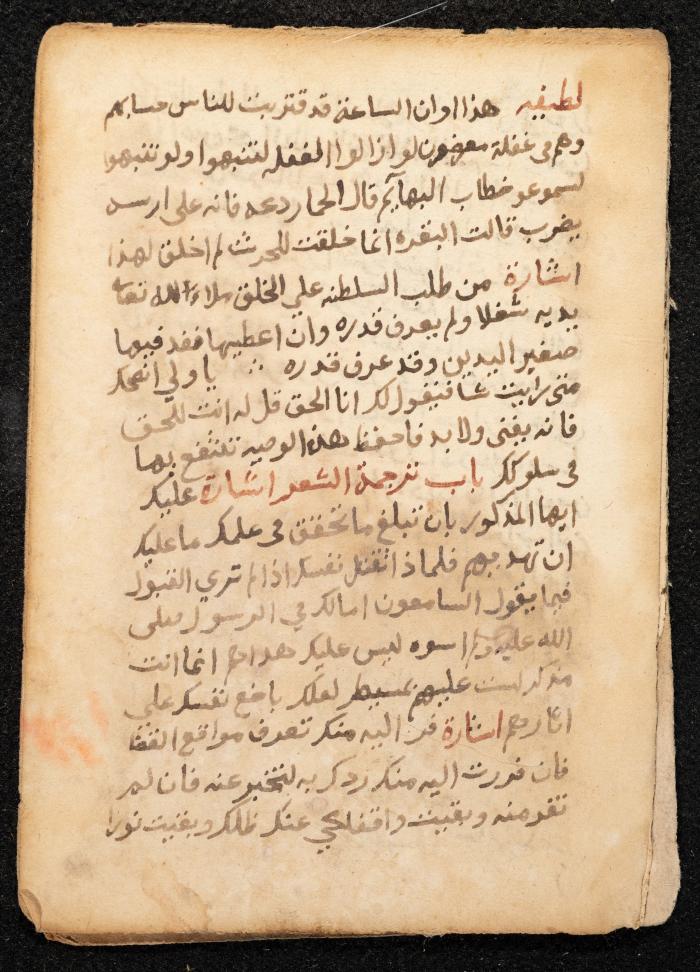 لطيفه هذا اوان الساعة قد قتربت للناس حسابهم
وهم في غفلة معرضون لو ازالوا الغفله لنتبهوا ولو نتبهوا
لسموعو خطاب البهايم قال الحمار دعه فانه على ارسه
يضرب قالت البقره انما خلقت للحرث لم اخلق لهذا
اشارة من طلب السلطنه علي الخلق ملاء الله تعا
يديه شغلا ولم يعرف قدره وان اعطيها فقد فيها
صفير اليدين وقد عرف قدره ياولي انصحك
متى رايت شا فيقول لك انا الحق قل له انت للحق
فانه يفنى ولا بد فاحفظ هذه الوصيه تنتفع بها
في سلوكك باب ترجمة الشعر اشارة عليك
ايها المذكور بان تبلغ ما تحقق في علمك ما عليك
ان تهديهم فلماذا تقتل نفسك اذا لم تري القبول
فيما يقول السامعون امالك في الرسول صلى
الله عليه وسلم اسوه ليس عليك هداهم انما انت
مذكر لست عليهم بمسيطر لعلك باخع نفسك على
اثارهم اشارة فر اليه منك تعرف مواقع القضا
فان فررت اليه منك ردك به لتخبر عنه فان لم
تفر منه وبقيت واقفا عنك ظلك وبقيت نورا